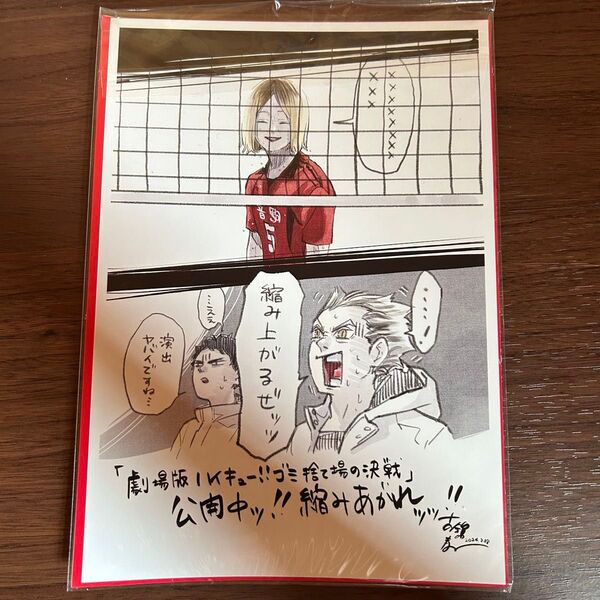 ××××××××
×××
音駒
5
‥‥‥!
縮み上がるぜッッ
…ススミ
演出
ヤバイですね…
「劇場版ハイキュー!!ゴミ捨て場の決戦」
公開中ッ!!縮みあがれッッ!!
2024.2.22